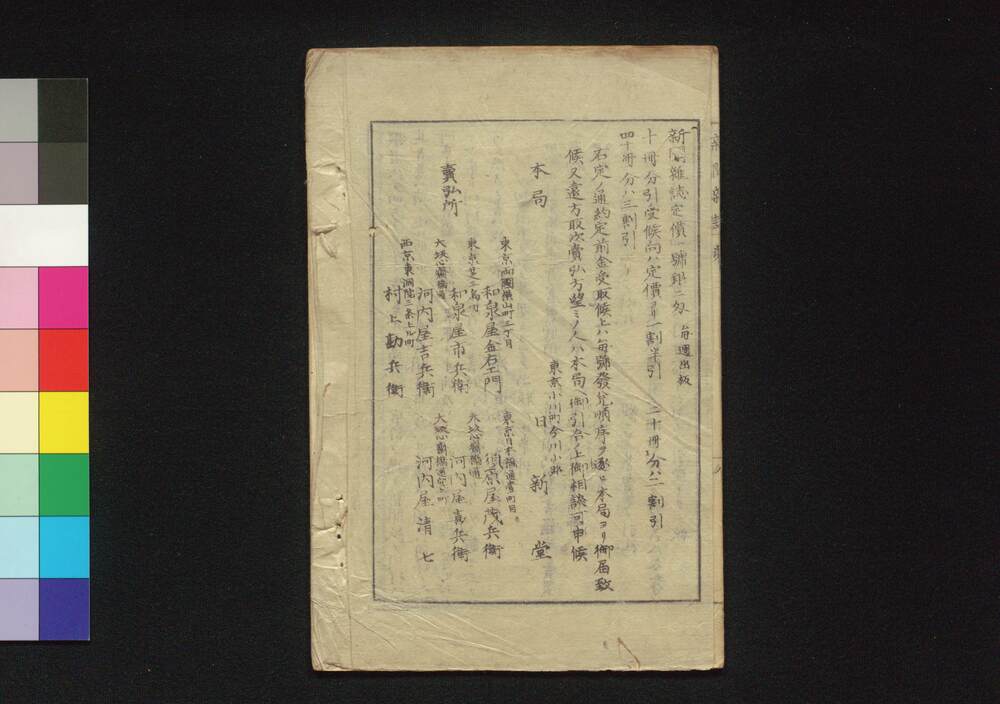 新聞雜誌定價一號銀二匁 每週出板
十冊分引受候向ハ定價ヨリ一割半引 二十冊分ハ二割引
四十冊分ハ三割引
右定ノ通約定前金受取候上ハ每號發兌順序ヲ逐ヒ本局ヨリ御届致
候又遠方取次賣弘方望ミノ人ハ本局御引合ノ上御相談可申候
東京小川町今川小路
本局 日新堂
賣弘所
東京両國橫山町三丁目
和泉屋金右エ門
東京日本橋通壹町目
須原屋茂兵衛
東京芝三島町
和泉屋市兵衛
大坂心齋橋通
河内屋真兵衛
大坂心齋橋通
河内屋吉兵衛
大坂心齋橋通
河内屋清七
西京東洞院三条上ル町
村上勘兵衛